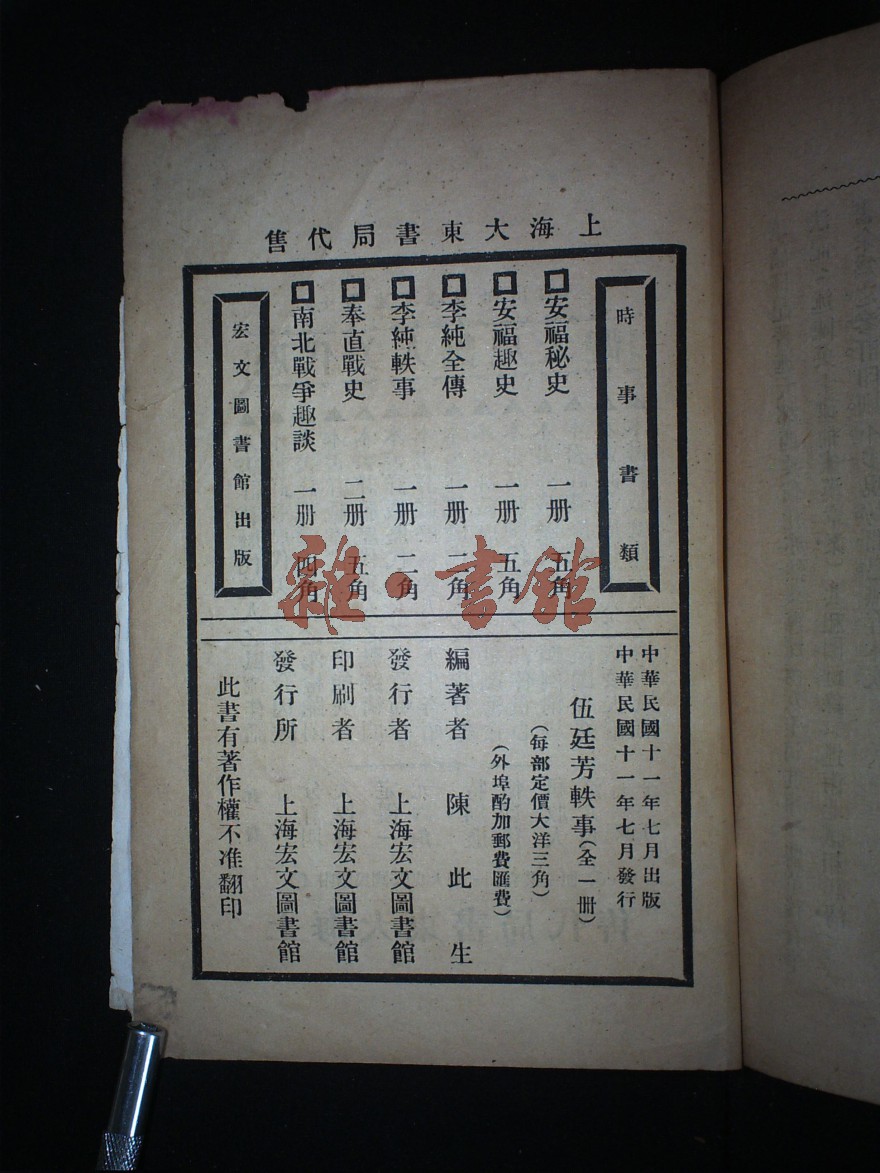 上海大東書局代售
時事書類
安福秘史 一册 五角
安福趣史 一册 五角
李純全傳 一册 二角
李純軼事 一册 二角
奉直戰史 二册 五角
南北戰爭趣談 一册 四角
宏文圖書館出版
中華民國十一年七月出版
中華民國十一年七月發行
伍廷芳軼事（全一册）
（每部定價大洋三角）
（外埠酌加郵費匯費）
編著者 陳此生
發行者 上海宏文圖書館
印刷者 上海宏文圖書館
發行所 上海宏文圖書館
此書有著作權不准翻印
雜·書館